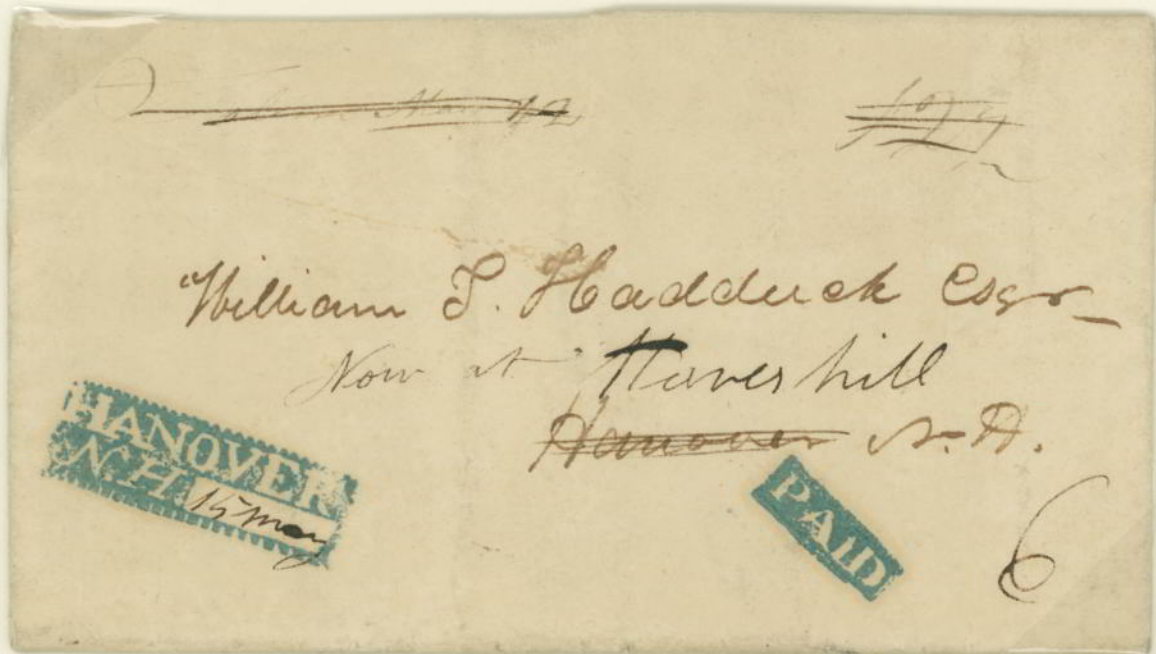 William T. Hadduck Esqr
Now at Haverhill
Hanover N.H.
HANOVER
N.H. 15 May
PAID
6